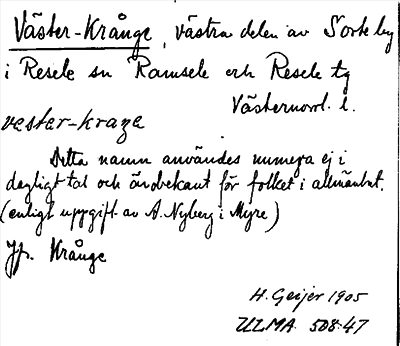 Väster-Krånge, västra delen av Sörtelby
i Resele sn Ramsele och Resele tg
Västernorrl. l.
vester-kraŋe
Detta namn användes numera ej i
dagligt tal och är obekant för folket i allmänhet.
(enligt uppgift av A. Nyberg i Myre)
Jfr. Krånge
H. Geijer 1905
ULMA 508:47